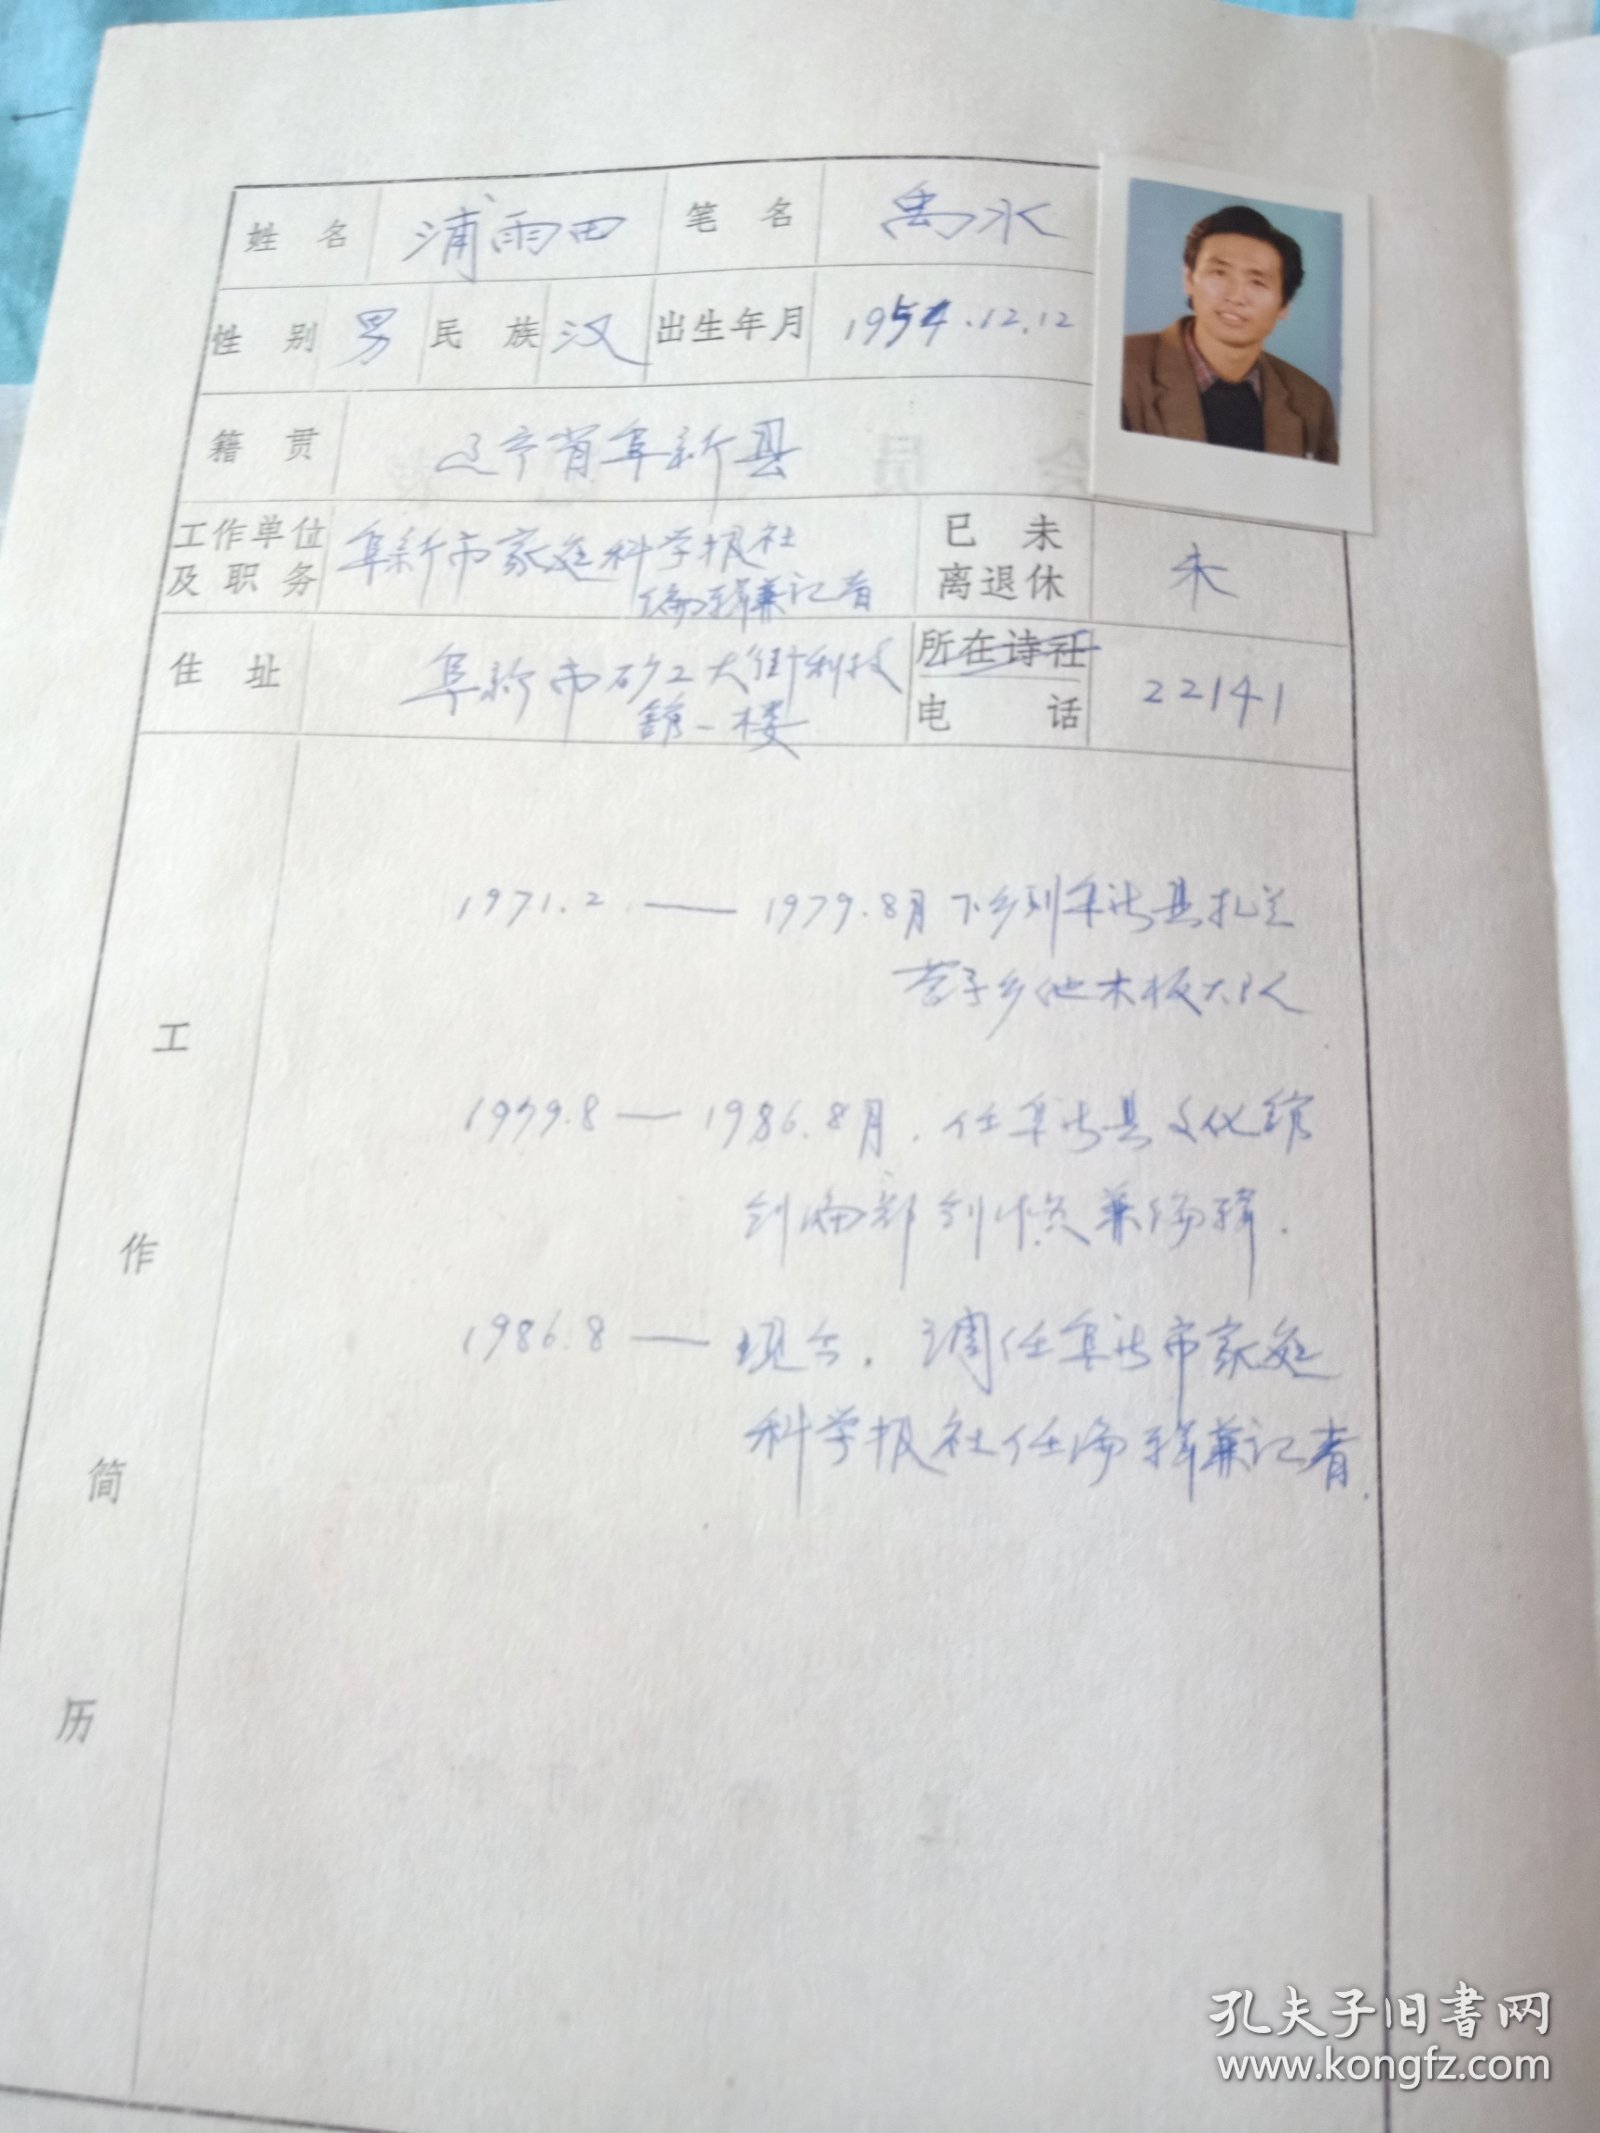 姓 名 浦雨田 笔 名 禹水
性 别 男 民 族 汉 出生年月 1954.12.12
籍 贯 辽宁省阜新县
工作单位及职务 阜新市家庭科学报社
编辑兼记者
已 未
离退休 未
住 址 阜新市矿工大街科技
馆一楼
所在诗社
电 话 22141
工作简历
1971.2——1979.8月下乡到阜新县扎兰
营子乡他木板大队
1979.8—1986.8月.任阜新县文化馆
创编部创作员兼编辑.
1986.8—现今.调任阜新市家庭
科学报社任编辑兼记者.
孔夫子旧书网
www.kongfz.com